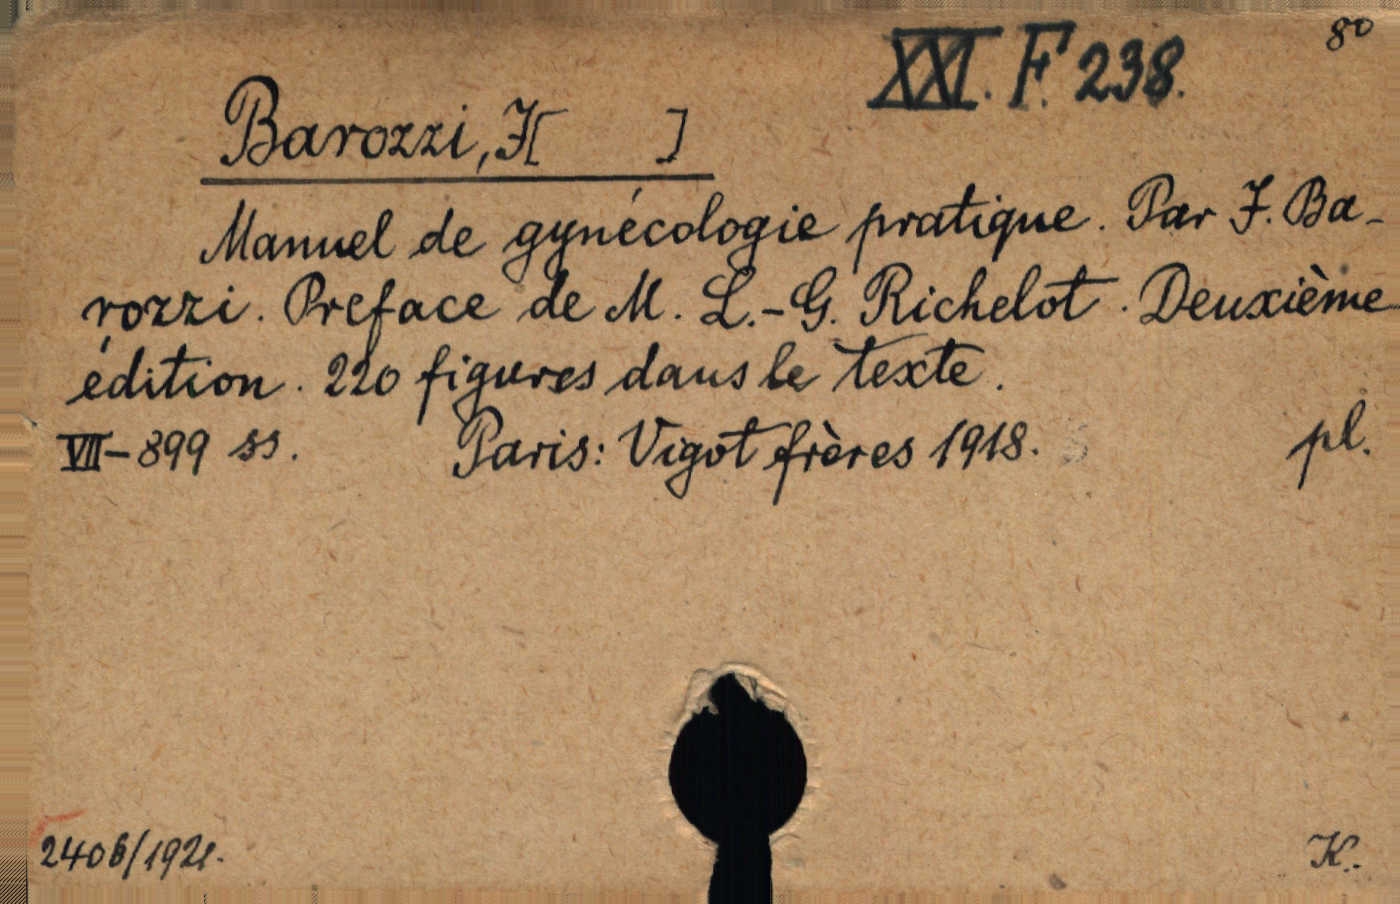 XXI. F. 238.
8°
Barozzi, J[ ]
Manuel de gynécologie pratique. Par J. Ba-
rozzi. Preface de M. L.-G. Richelot. Deuxième
édition. 220 figures dans le texte.
VII-899 ss. Paris: Vigot frères 1918. pl.
2406/1921.
K.